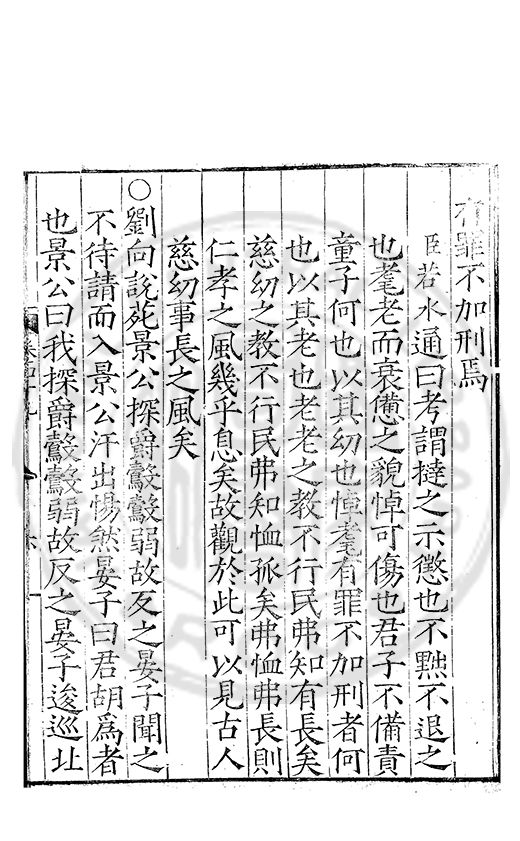 有罪不加刑焉
臣若水通曰考謂撻之示懲也不黜不退之
也耄老而衰憊之貌悼可傷也君子不備責
童子何也以其幼也悼耄有罪不加刑者何
也以其老也老老之教不行民弗知有長矣
慈幼之教不行民弗知恤孤矣弗恤弗長則
仁孝之風幾乎息矣故觀於此可以見古人
慈幼事長之風矣
○劉向說苑景公探爵鷇鷇弱故反之晏子聞之
不待請而入景公汗出惕然晏子曰君胡爲者
也景公曰我探爵鷇鷇弱故反之晏子逡巡北